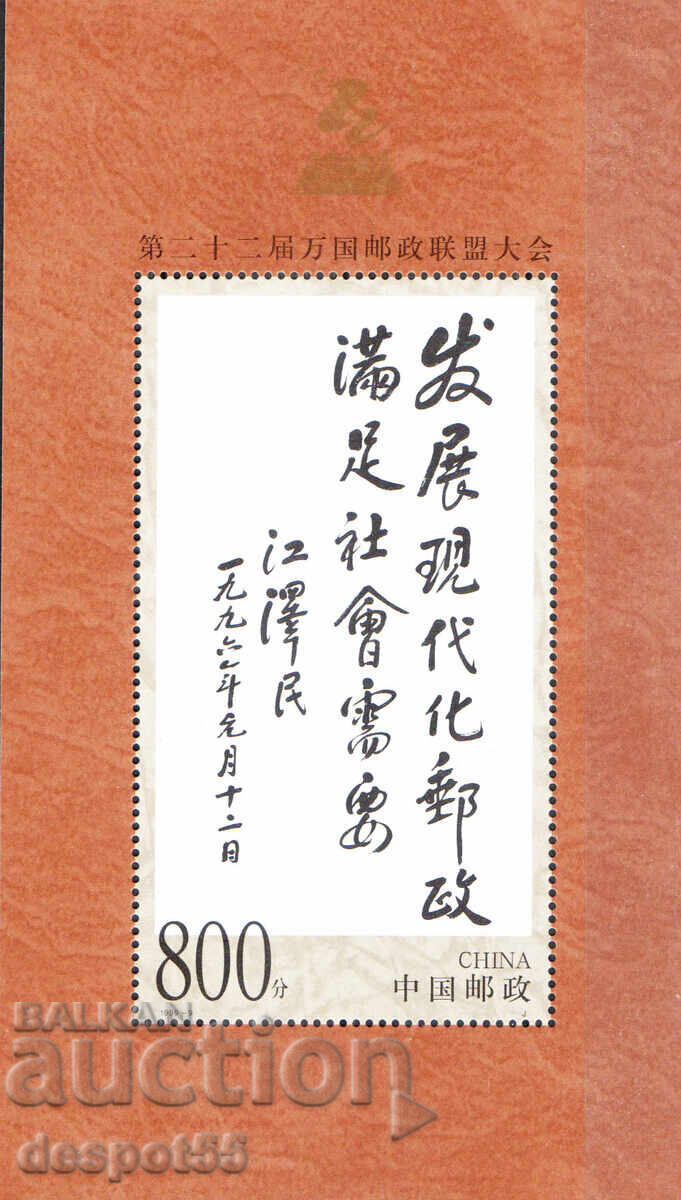 第二十二届万国邮政联盟大会
发展現代化郵政
满足社會需要
江澤民
一九九六年元月十二日
800分
CHINA
中国邮政
1999-9
J
BALKAN
auction
despot55